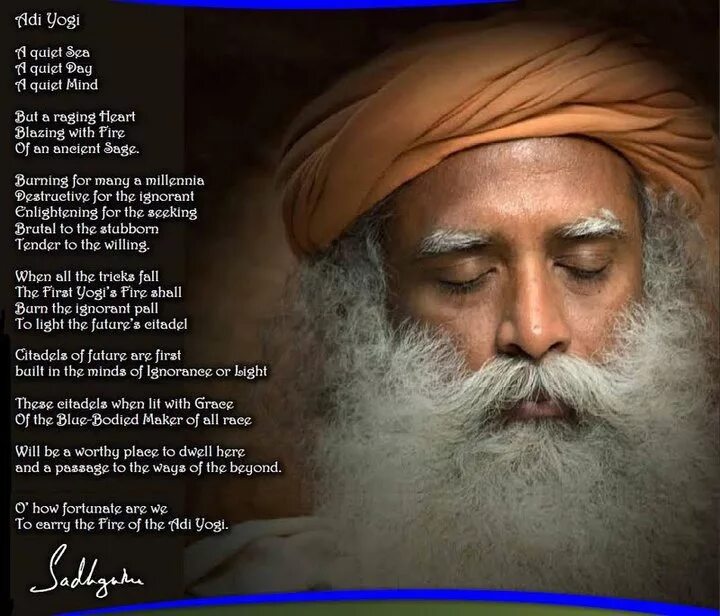 Adi Yogi
A quiet Sea
A quiet Day
A quiet Mind
But a raging Heart
Blazing with Fire
Of an ancient Sage.
Burning for many a millennia
Destructive for the ignorant
Enlightening for the seeking
Brutal to the stubborn
Tender to the willing.
When all the tricks fall
The First Yogi's Fire shall
Burn the ignorant pall
To light the future's citadel
Citadels of future are first
built in the minds of Ignorance or Light
These citadels when lit with Grace
Of the Blue-Bodied Maker of all race
Will be a worthy place to dwell here
and a passage to the ways of the beyond.
O' how fortunate are we
To carry the Fire of the Adi Yogi.
Sadhguru